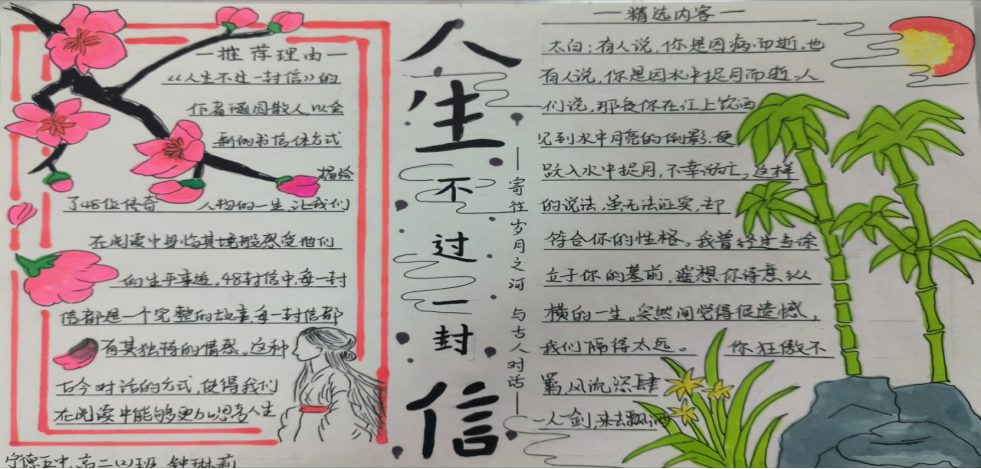 一推荐理由一
《人生不过一封信》的
作者通过散人,以全
新的书信体方式
描绘
了48位传奇 人物的一生,让我们
在阅读中身临其境般感受他们
的生平事迹,48封信中,每一封
信都是一个完整的故事,每一封信都
有其独特的情感。这种
古今对话的方式,使得我们
在阅读中能够更加思考人生
宁德五中,高二(2)班 钟琳莉
人生不过一封信
——寄往岁月之河 与古人对话——
—精选内容—
太白:有人说,你是因病而逝,也
有人说,你是因水中捉月而逝。人
们说,那夜你在江上饮酒
见到水中月亮的倒影,便
跃入水中捉月,不幸溺亡。这样
的说法,虽无法证实,却
符合你的性格。我曾经过当涂
立于你的墓前,遥想你诗意纵
横的一生。突然间觉得很遗憾,
我们隔得太远。 你狂傲不
羁,风流深肆
一人一剑,来去飘洒